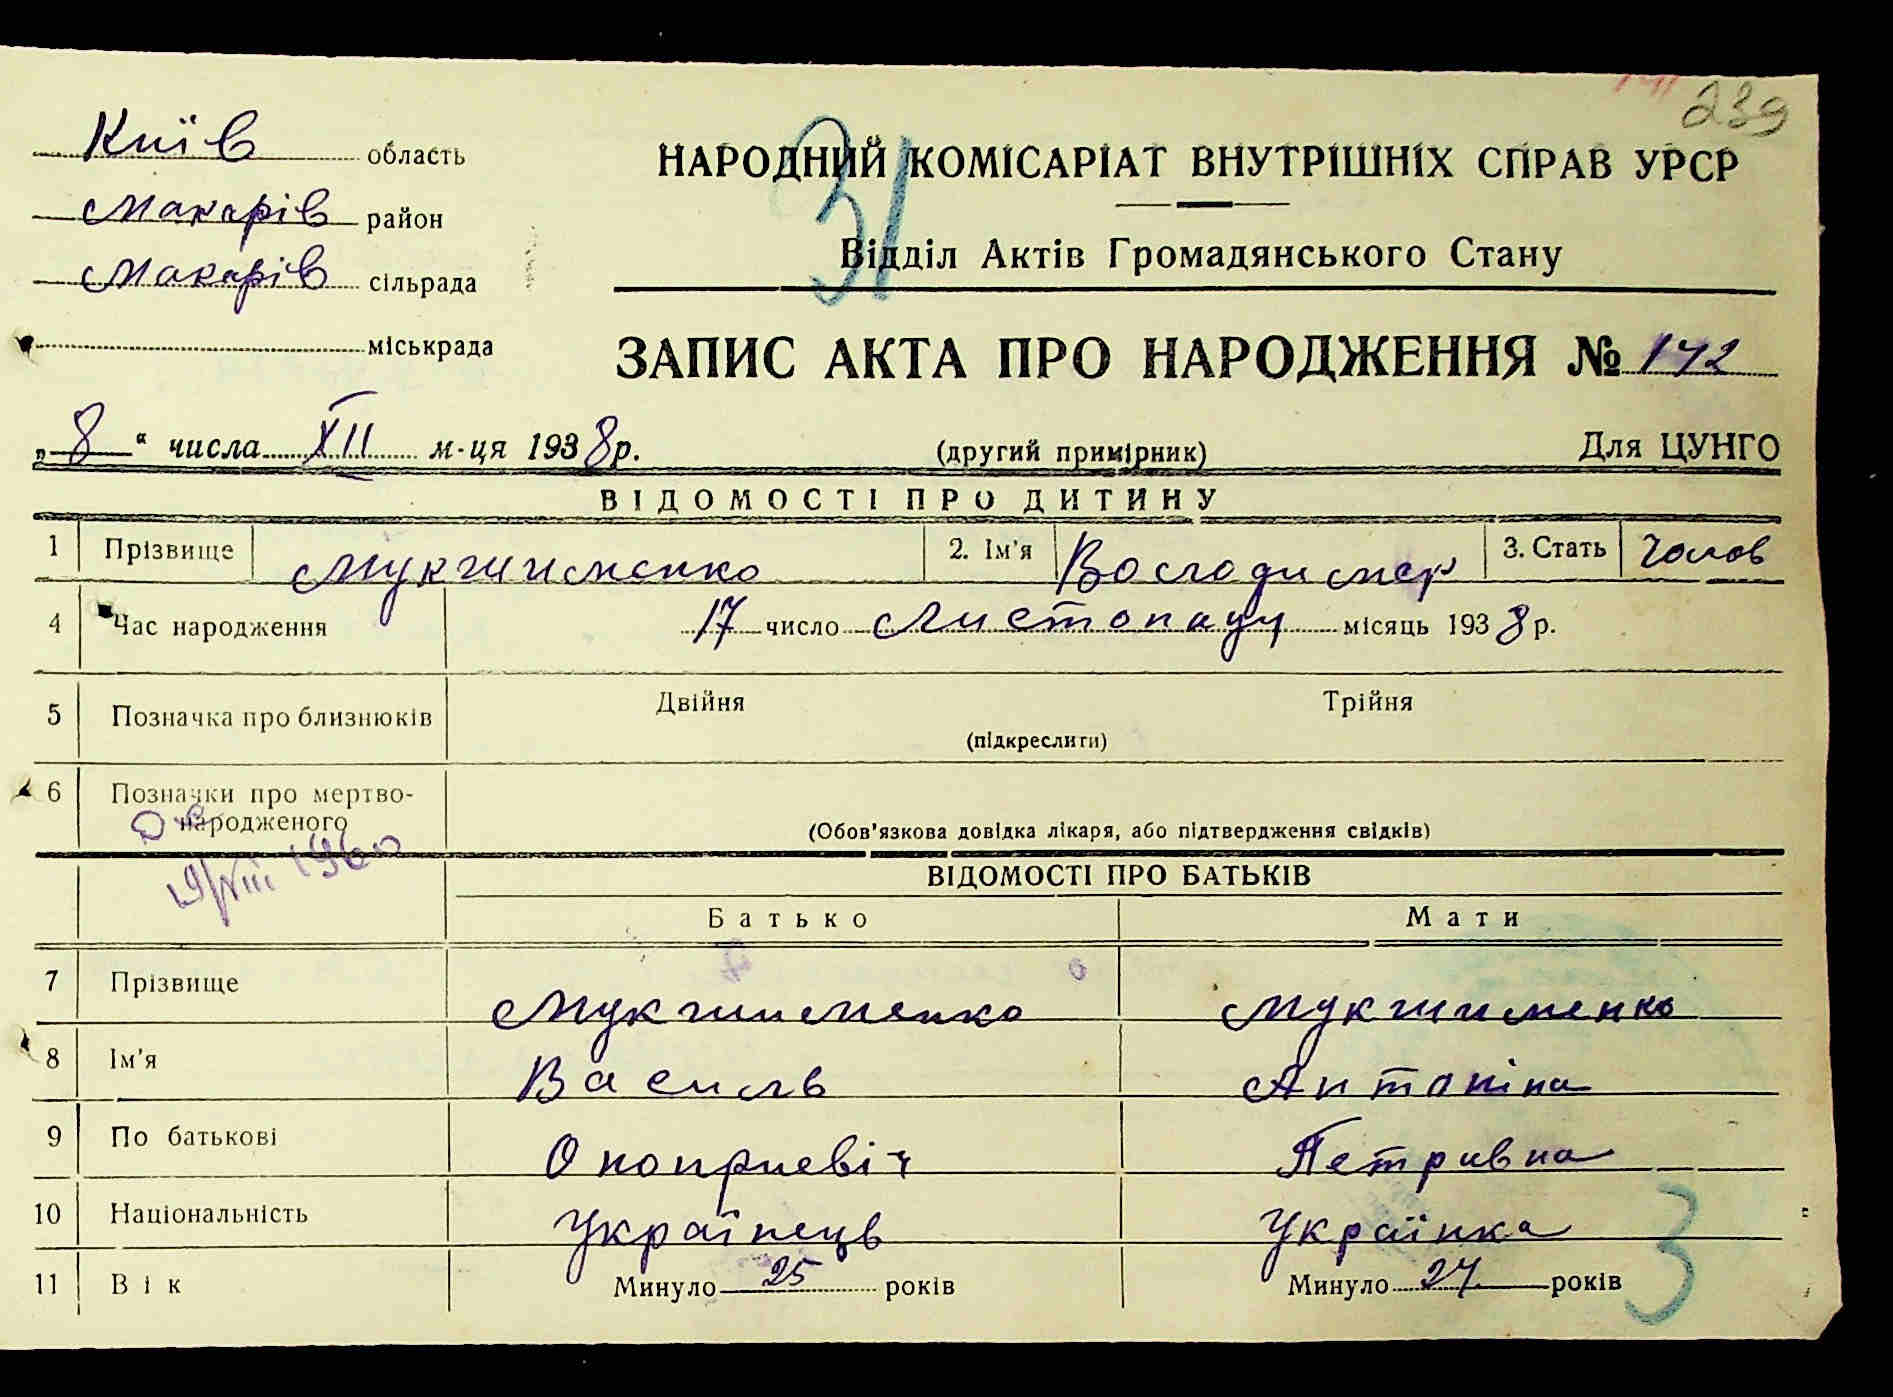 239
Київ область
НАРОДНИЙ КОМІСАРІАТ ВНУТРІШНІХ СПРАВ УРСР
31
Макарів район
Відділ Актів Громадянського Стану
Макарів сільрада
міськрада
ЗАПИС АКТА ПРО НАРОДЖЕННЯ № 142
„8“ числа XII м-ця 1938р.
(другий примірник)
Для ЦУНГО
ВІДОМОСТІ ПРО ДИТИНУ
1 Прізвище Мукшименко 2. Ім'я Володимер 3. Стать Чолов
4 Час народження 17 число Листопаду місяць 1938р.
5 Позначка про близнюків Двійня Трійня
(підкреслити)
6 Позначки про мертво-
народженого
(Обов'язкова довідка лікаря, або підтвердження свідків)
19/VIII 1960
ВІДОМОСТІ ПРО БАТЬКІВ
Батько Мати
7 Прізвище Мукшименко Мукшименко
8 Ім'я Василь Антоніна
9 По батькові Оноприевіч Петривна
10 Національність Українець Українка
11 Вік Минуло 25 років Минуло 24 років
3